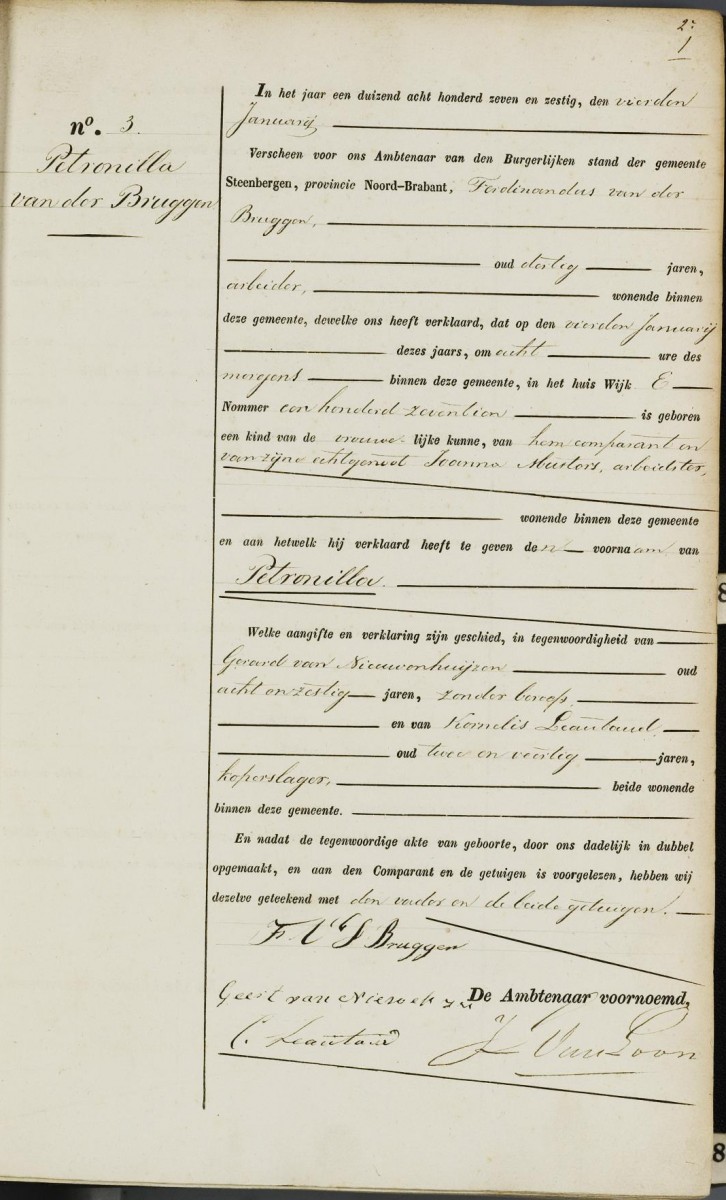 2
1
nº. 3.
Petronilla
van der Bruggen
In het jaar een duizend acht honderd zeven en zestig, den vierden
Januarij
Verscheen voor ons Ambtenaar van den Burgerlijken stand der gemeente
Steenbergen, provincie Noord-Brabant, Ferdinandus van der
Bruggen,
oud dertig jaren,
arbeider, wonende binnen
deze gemeente, dewelke ons heeft verklaard, dat op den vierden Januarij
dezes jaars, om acht ure des
morgens binnen deze gemeente, in het huis Wijk E
Nommer een honderd zeventien is geboren
een kind van de vrouwe lijke kunne, van hem comparant en
van zijne echtgenoot Joanna Musters, arbeidster,
wonende binnen deze gemeente
en aan hetwelk hij verklaard heeft te geven de n voorna am van
Petronilla.
Welke aangifte en verklaring zijn geschied, in tegenwoordigheid van
Gerard van Nieuwenhuijzen oud
acht en zestig jaren, zonder beroep,
en van Kornelis Leautaud
oud twee en veertig jaren,
koperslager, beide wonende
binnen deze gemeente.
En nadat de tegenwoordige akte van geboorte, door ons dadelijk in dubbel
opgemaakt, en aan den Comparant en de getuigen is voorgelezen, hebben wij
dezelve geteekend met den vader en de beide getuigen.
F. V d Bruggen
Geert van
De Ambtenaar voornoemd,
C. Leautaud
J Van Loon
8
8